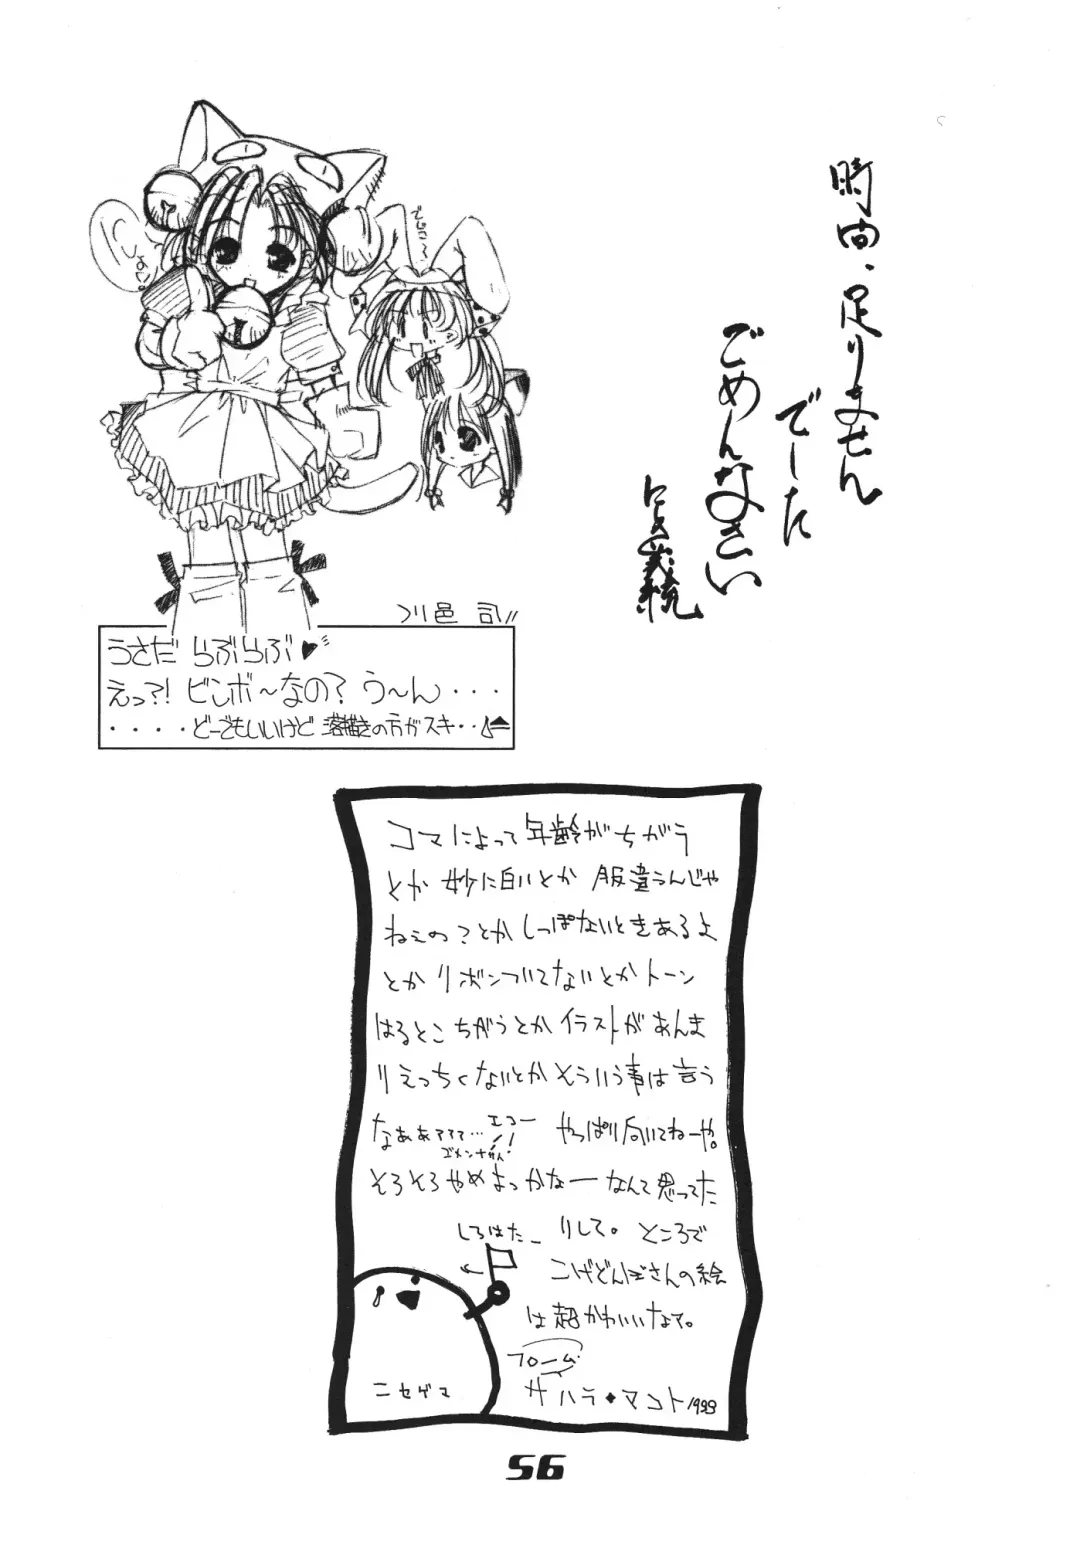 時間、足りません
でした
ごめんなさい
にょ
でじこ〜
川邑 司
うさだ らぶらぶ♥
えっ?! ビンボ〜なの? う〜ん・・・・
・・・・どーでもいいけど 落描きの方がスキ・・
コマによって年齢がちがう
とか 妙に白いとか 服違うんじゃ
ねぇの?とか しっぽないときあるよ
とか リボンついてないとか トーン
はるとこちがうとか イラストがあんま
りえっちくないとか そういう事は言う
なぁあァァァ… エコー やっぱり向いてねーや。
ゴメンナサイ!
そろそろやめよっかなー なんて思ってた
しろはた りして。 ところで
こげどんぼさんの絵
は超かわいいなて。
フローム
ニセゲマ サハラ◆マコト 1998
56